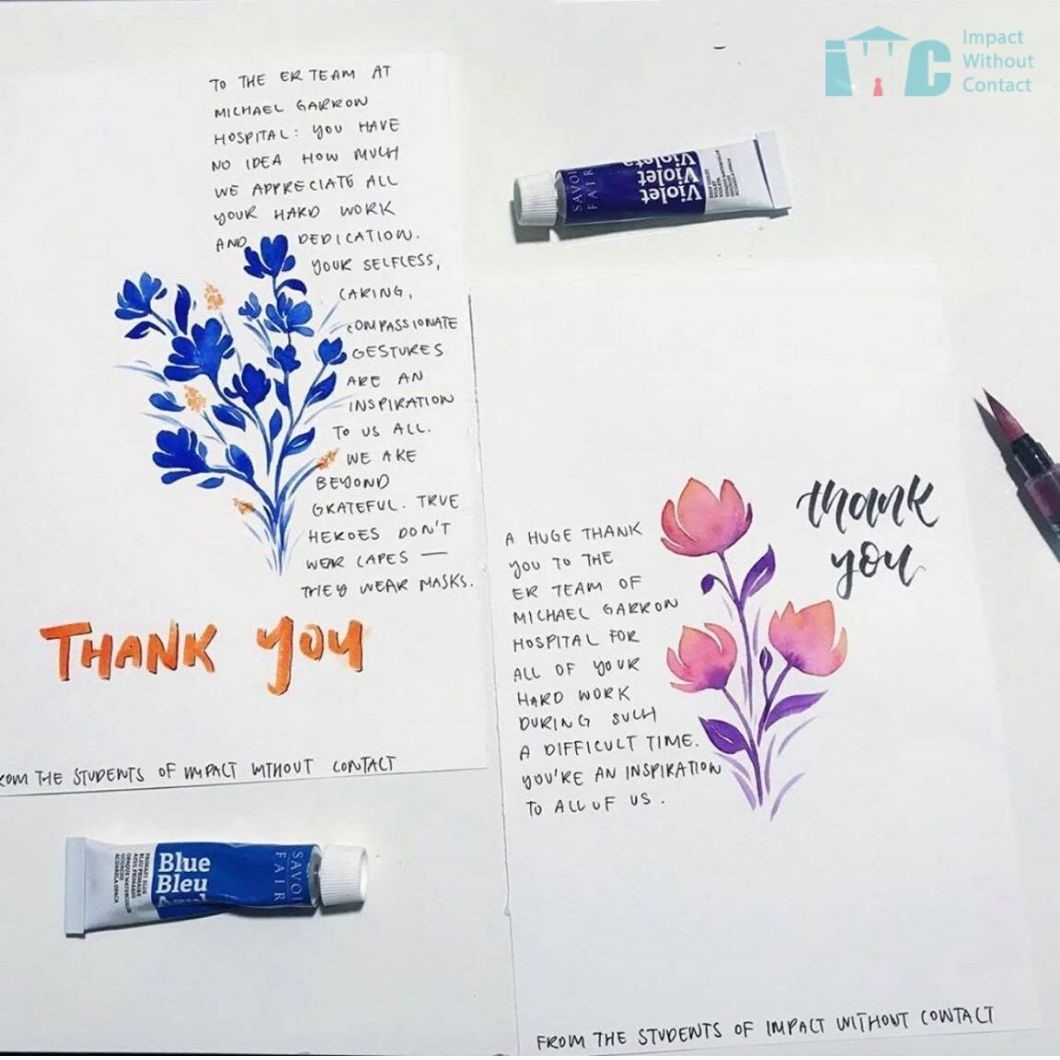 iWC
Impact
Without
Contact
TO THE ER TEAM AT
MICHAEL GARRON
HOSPITAL: YOU HAVE
NO IDEA HOW MUCH
WE APPRECIATE ALL
YOUR HARD WORK
AND DEDICATION.
YOUR SELFLESS,
CARING,
COMPASSIONATE
GESTURES
ARE AN
INSPIRATION
TO US ALL.
WE ARE
BEYOND
GRATEFUL. TRUE
HEROES DON'T
WEAR CAPES —
THEY WEAR MASKS.
THANK YOU
THE STUDENTS OF IMPACT WITHOUT CONTACT
Violet
Violet
SAVOI
FAIR
A HUGE THANK
YOU TO THE
ER TEAM OF
MICHAEL GARRON
HOSPITAL FOR
ALL OF YOUR
HARD WORK
DURING SUCH
A DIFFICULT TIME.
YOU'RE AN INSPIRATION
TO ALL OF US.
thank
you
FROM THE STUDENTS OF IMPACT WITHOUT CONTACT
Blue
Bleu
SAVOI
FAIR
PRIMARY BLUE
BLEU PRIMAIRE
AZUL PRIMARIO